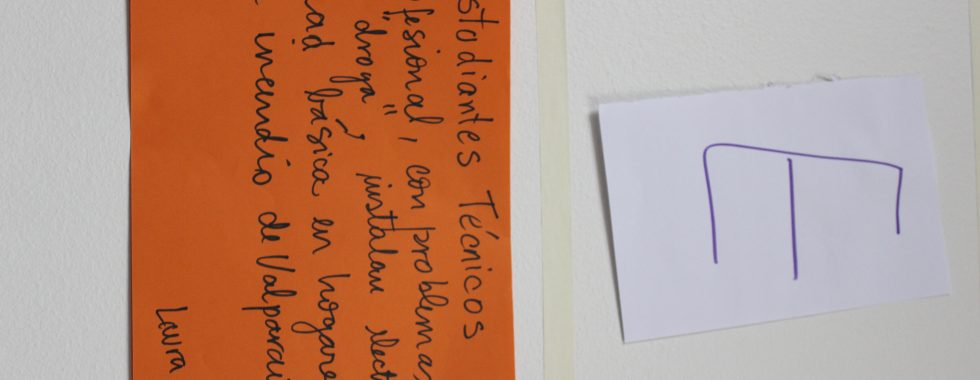 studiantes Técnicos
fesional, con problemas
"droga", instalan elect
ad basica en hogare
incendio de Valparai
Laura
E